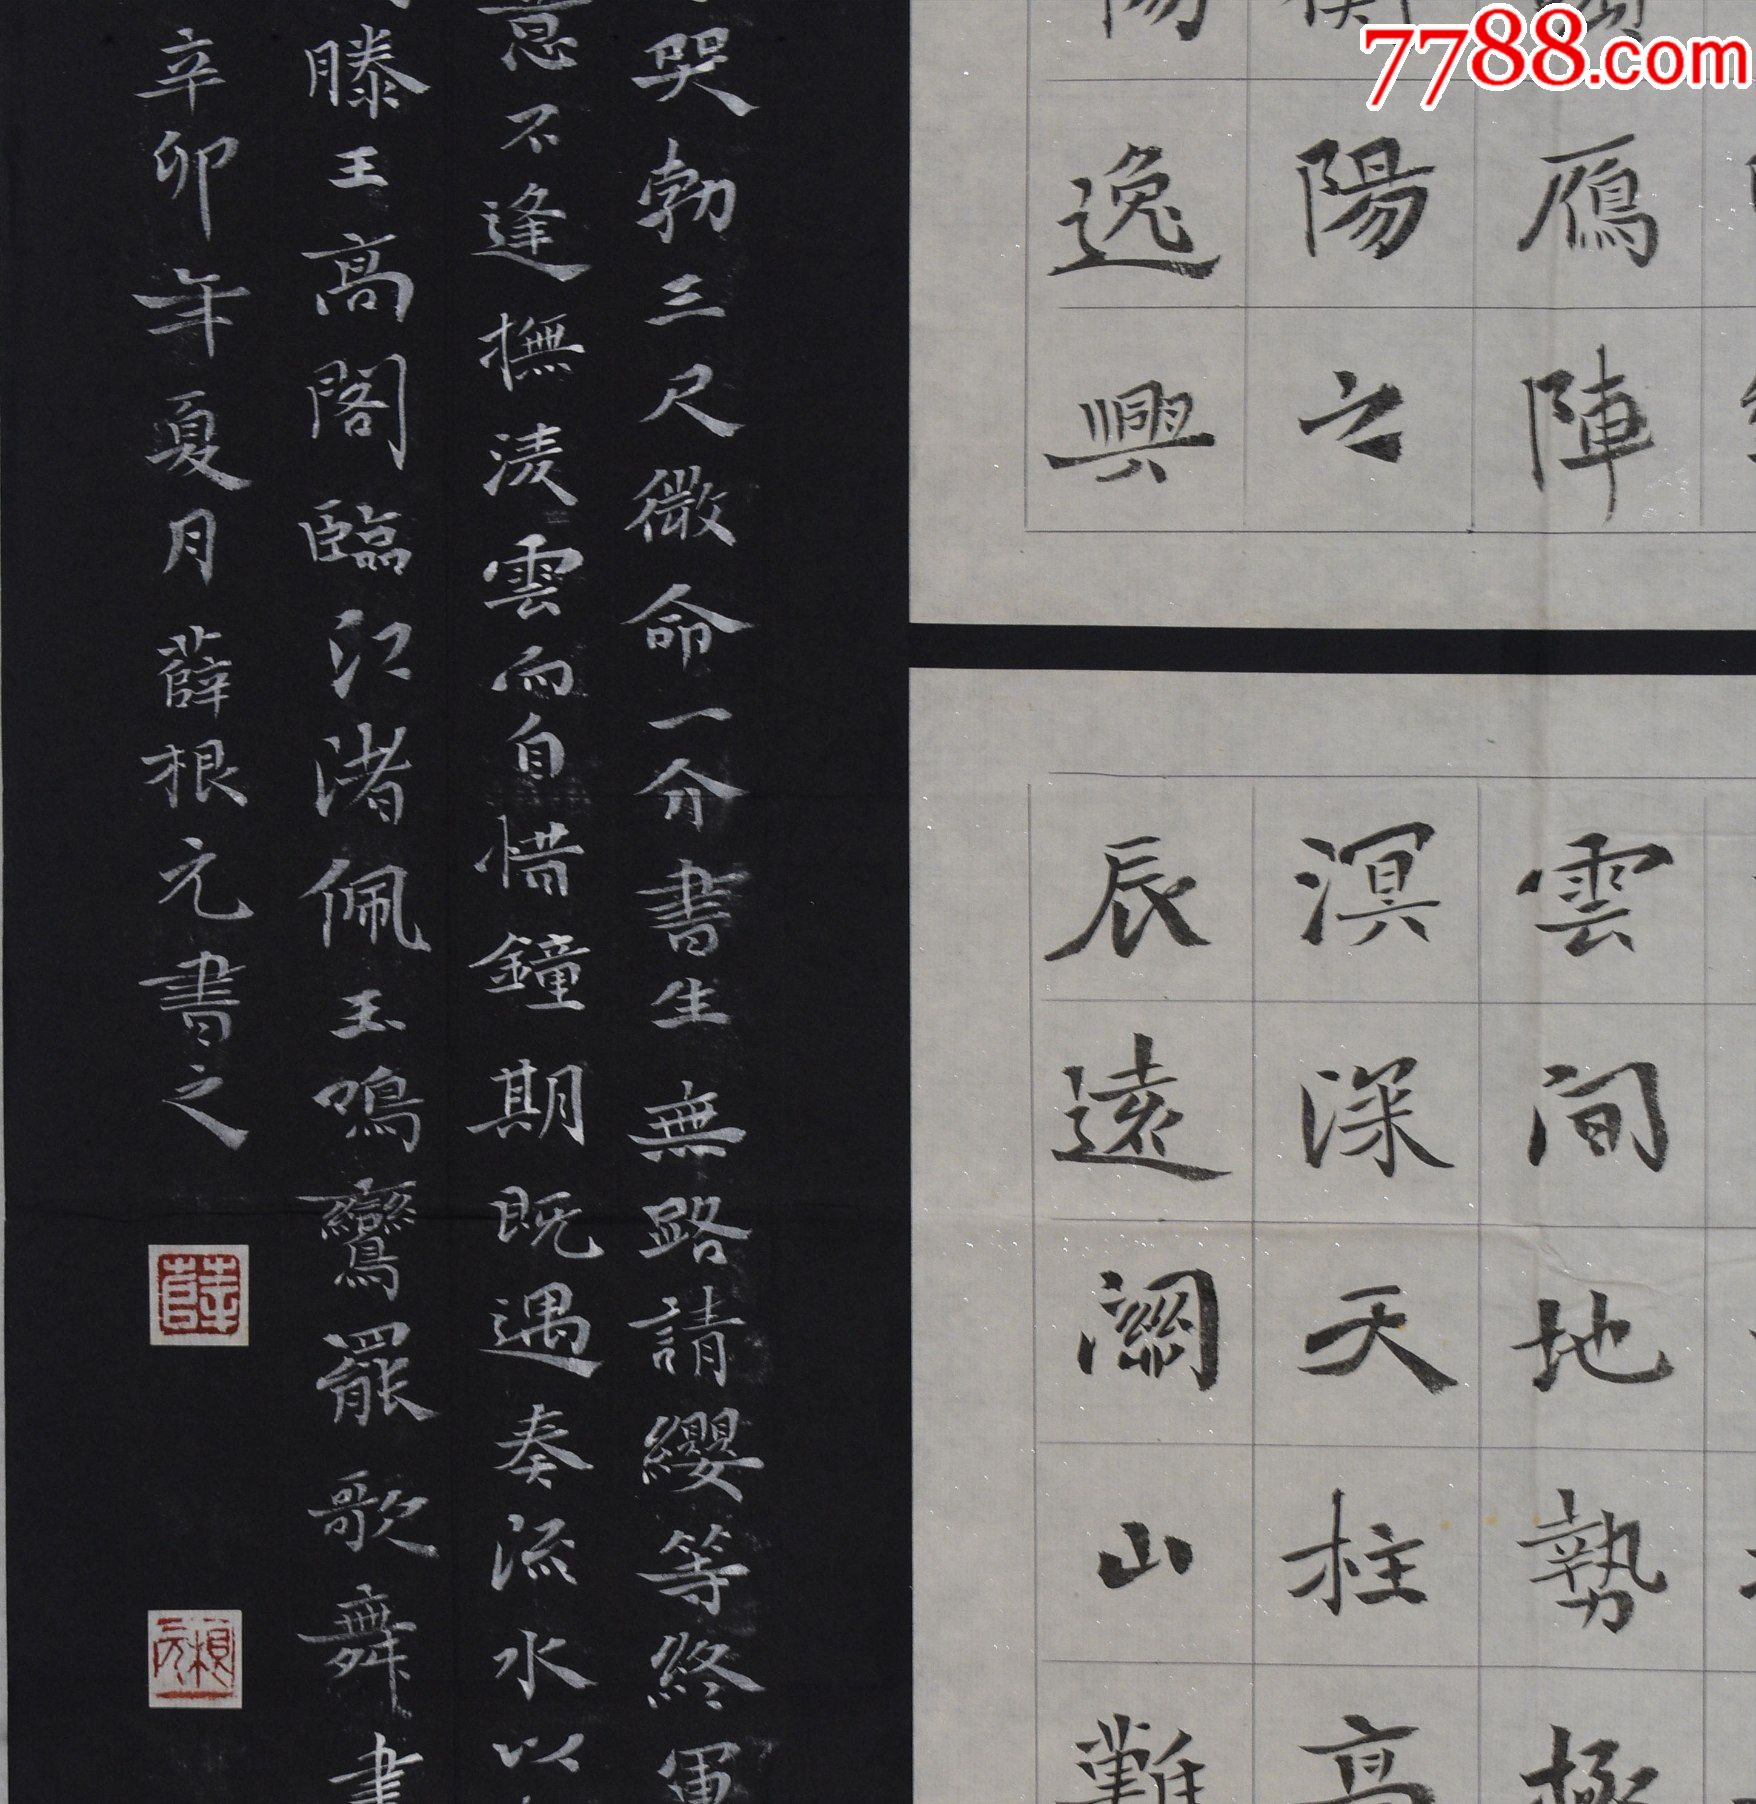 7788.com
雁陣
衡陽之
逸興
雲間地勢極
溟深天柱高
辰遠關山難
哭勃三尺微命一介書生無路請纓等終軍
意不逢撫淩雲而自惜鐘期既遇奏流水以
滕王高閣臨江渚佩玉鳴鸞罷歌舞畫
辛卯年夏月薛根元書之
根元